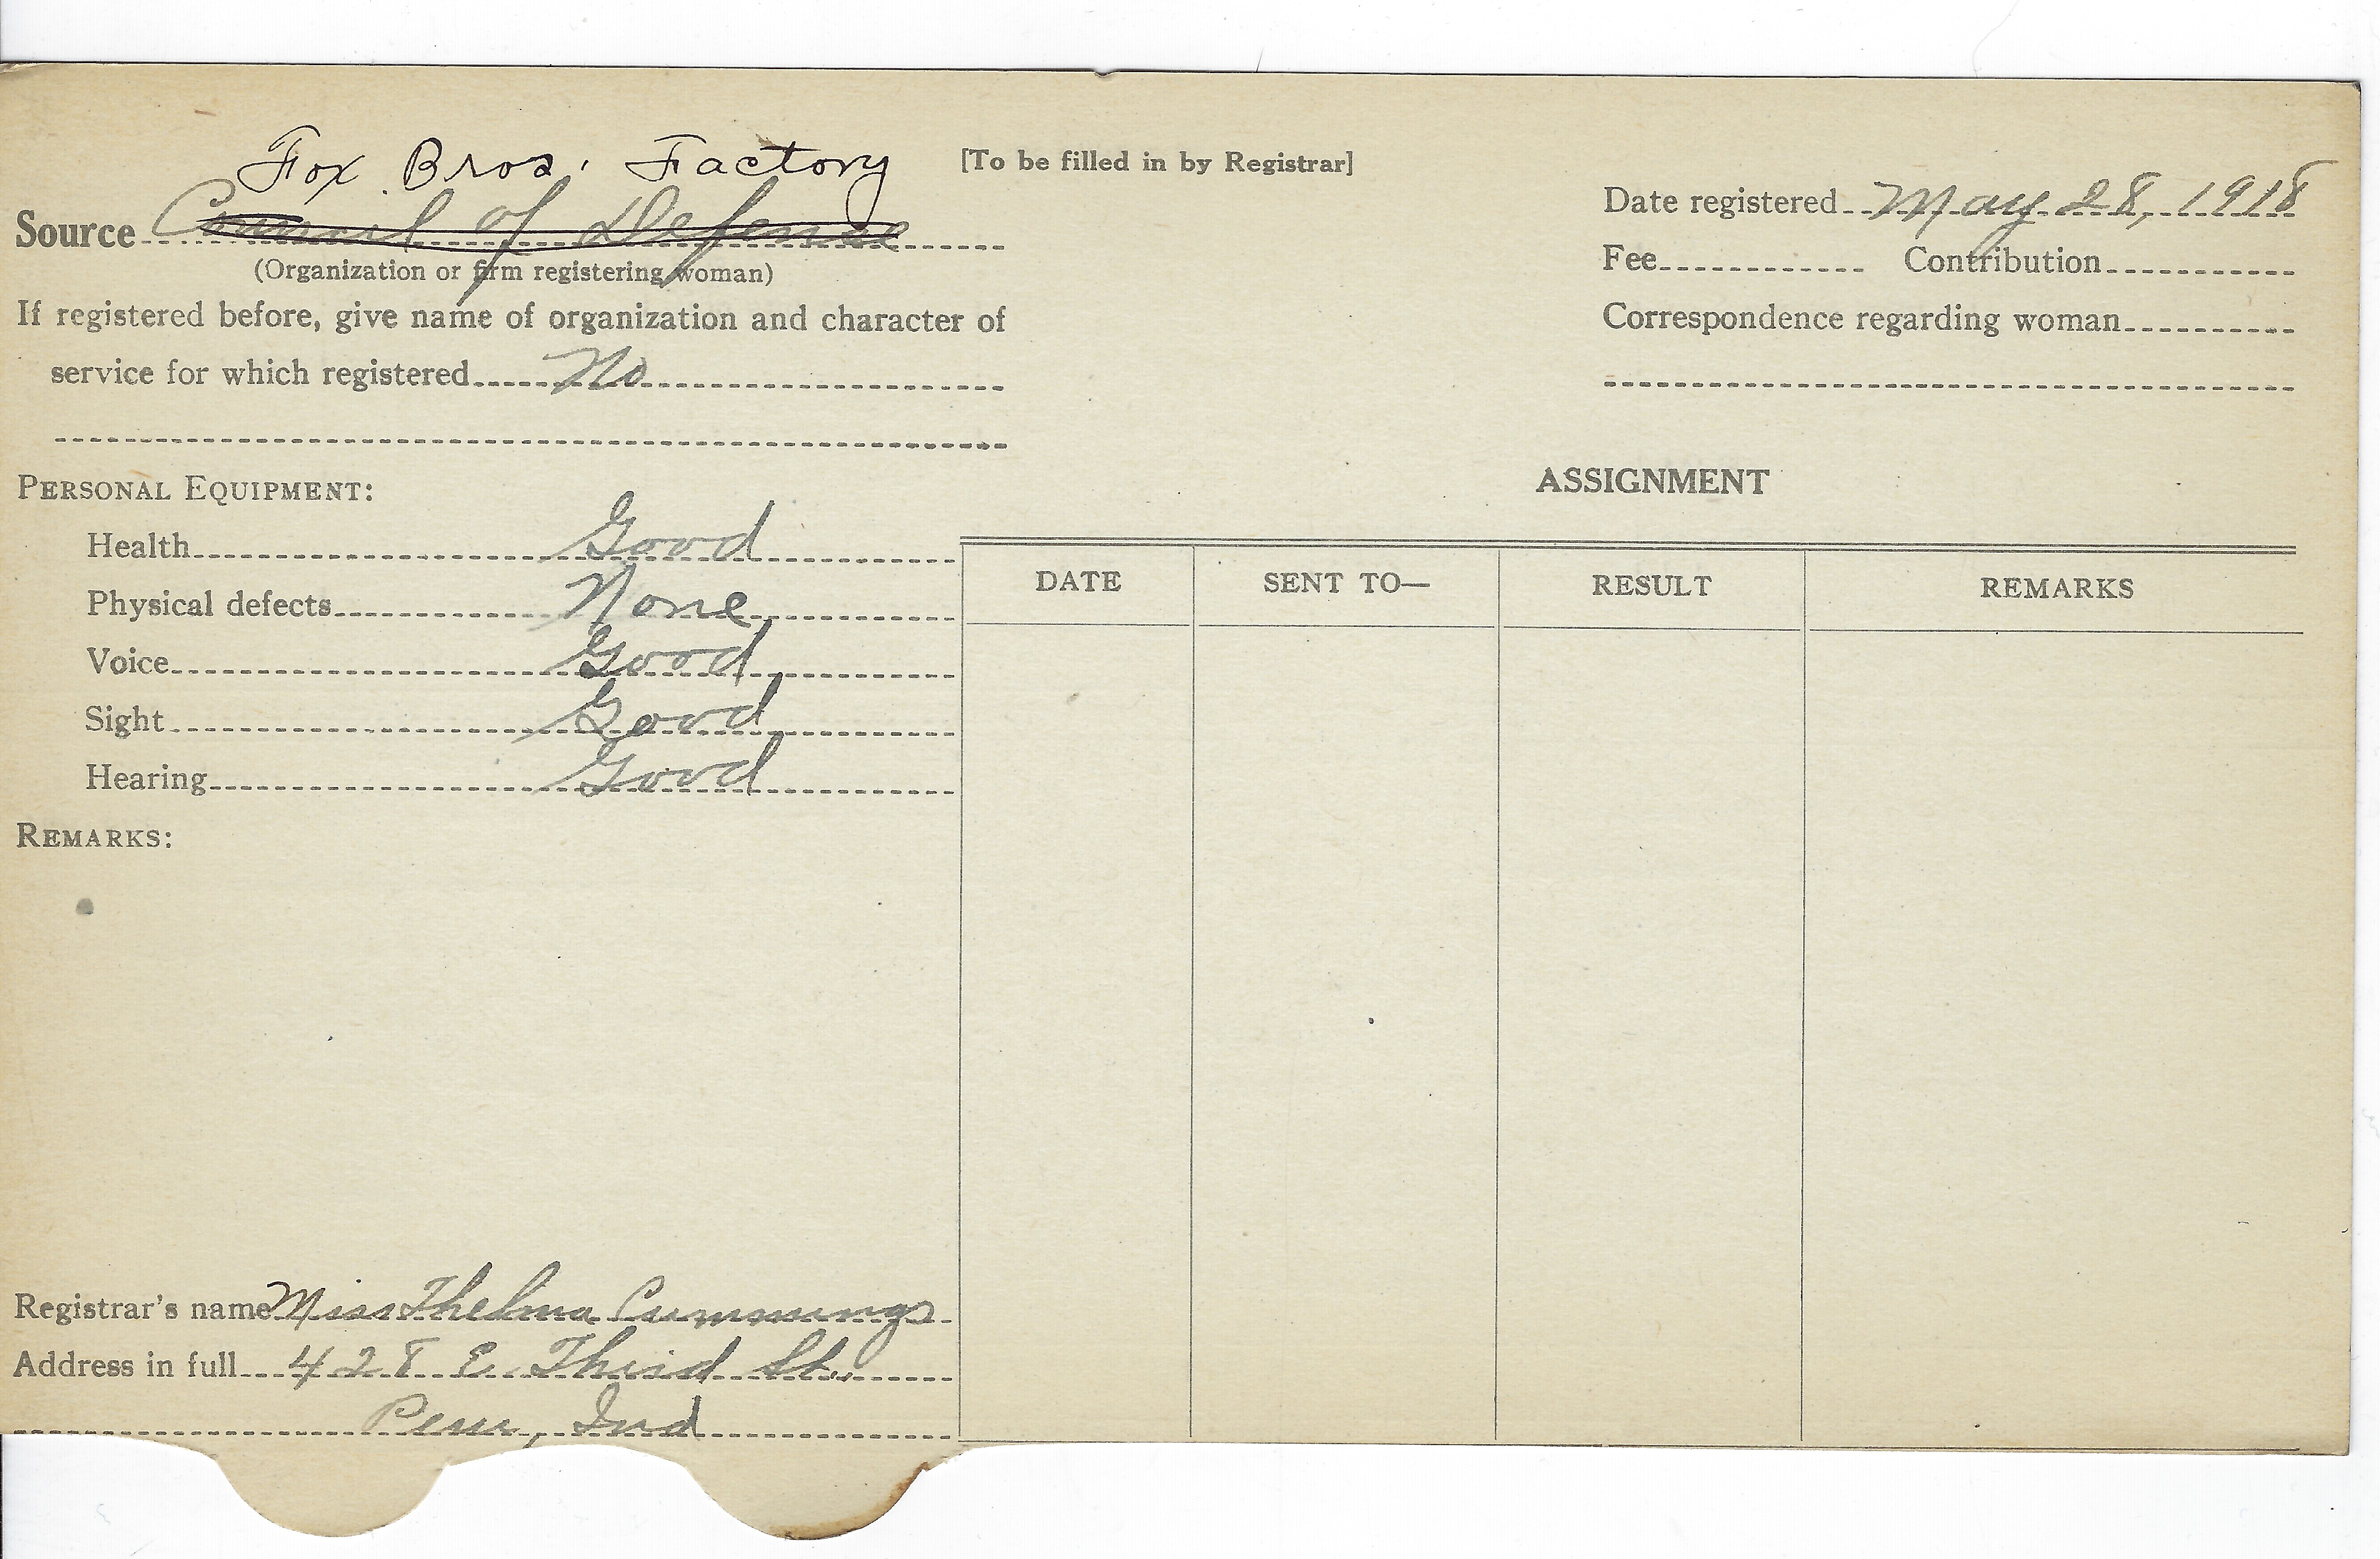 Fox Bros. Factory
[To be filled in by Registrar]
Source Council of Defense
(Organization or firm registering woman)
If registered before, give name of organization and character of
service for which registered No
Date registered May 28, 1918
Fee Contribution
Correspondence regarding woman
PERSONAL EQUIPMENT:
Health Good
Physical defects None
Voice Good
Sight Good
Hearing Good
REMARKS:
ASSIGNMENT
DATE SENT TO— RESULT REMARKS
Registrar's name Miss Thelma Cummings
Address in full 428 E. Third St.,
Peru, Ind